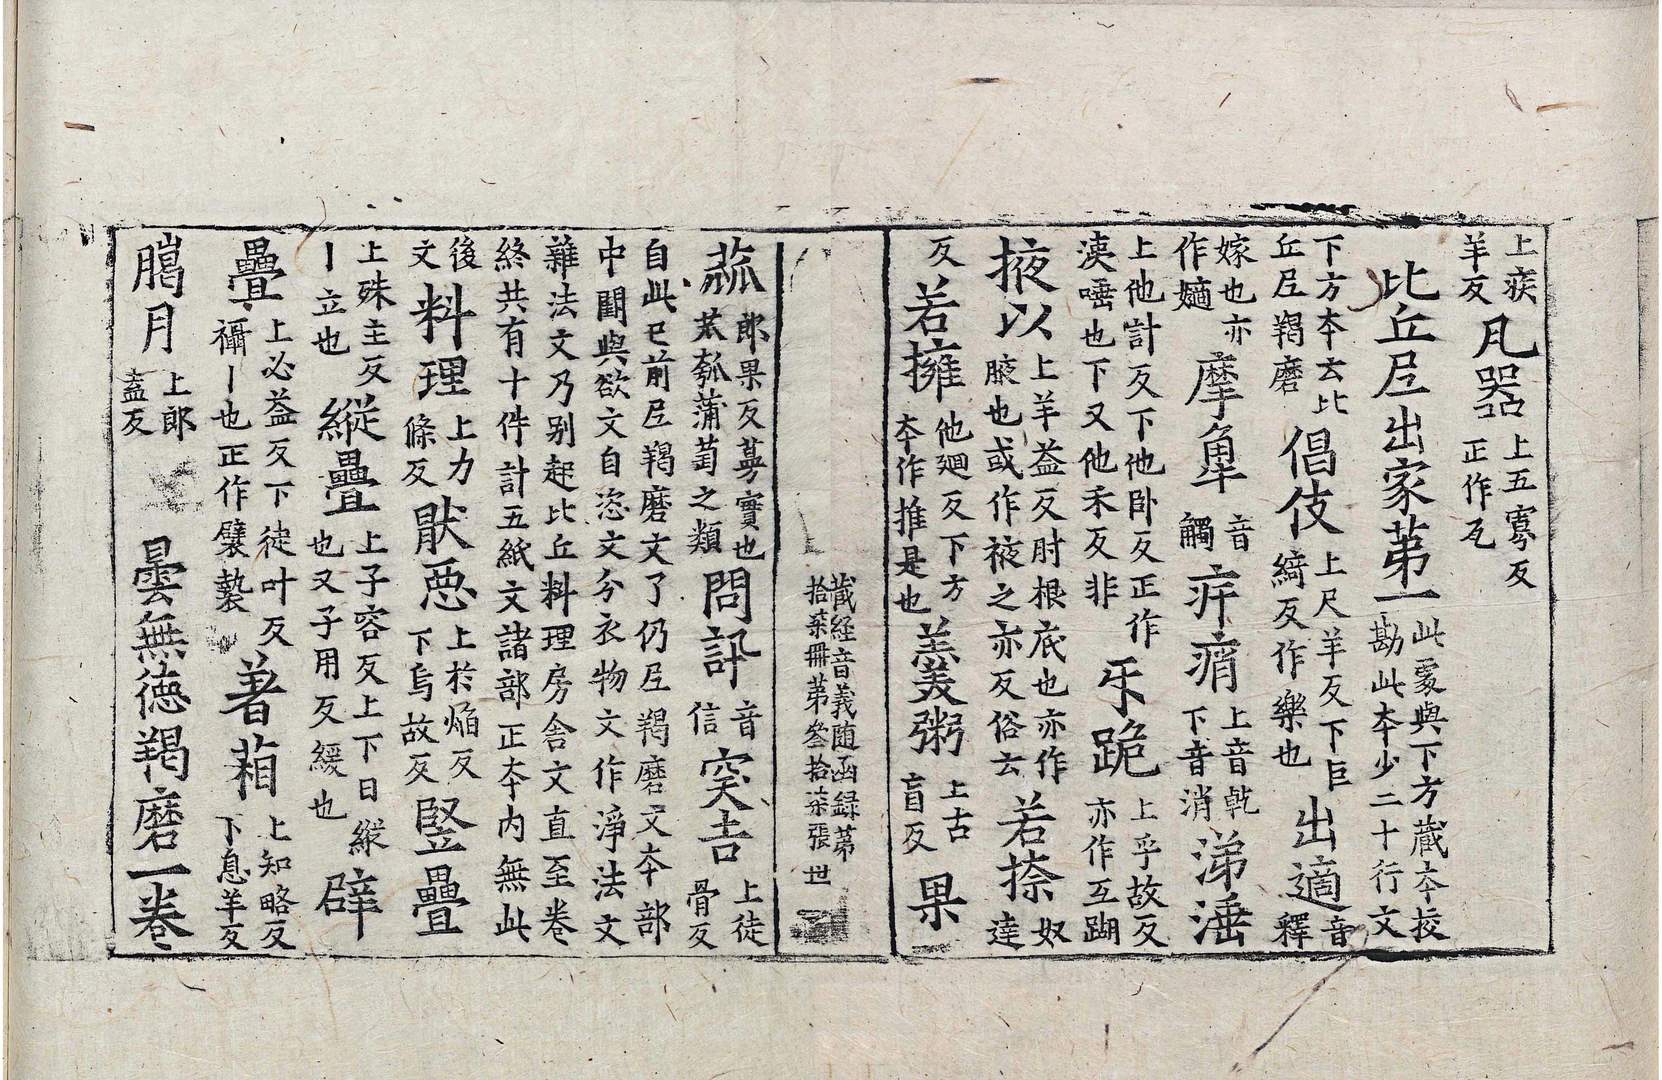 上疾羊反凡器上五寡反正作瓦
比丘尼出家苐一此處與下方藏夲挍勘此夲少二十行文
下方夲云比丘尼羯磨倡伎上尺羊反下巨綺反作樂也出適音釋
嫁也亦作嫡摩音觸疥痟上音乾下音消涕涶
上他計反下他卧反正作唾也下又他禾反非㸦跪上乎故反亦作互
掖以上羊益反肘根底也亦作腋也或作之亦反俗云若捺奴達
反若擁他廻反下方夲作推是也粥上古盲反果
藏経音義随函録苐
拾柒冊苐叄拾柒張 世
蓏郎果反蔓實也苽瓠蒲萄之類問訊音信突吉上徒骨反
自此已前尼羯磨文了仍尼羯磨文夲部
中闘與欲文自恣文分衣物文作淨法文
雜法文乃别起比丘料理房舍文直至卷
終共有十件計五紙文諸部正夲内無此
後文料理上力條反猒惡上於焔反下烏故反竪疊
上殊主反丨立也縱疊上子容反上下曰縱也又子用反緩也辟
疊上必益反下徒叶反襵丨也正作襞褺著葙上知略反下息羊反
臈月上郎盍反曇無德羯磨一卷